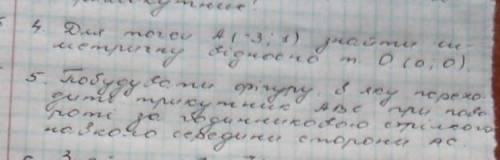 трикутник
4. Для точки А (-3; 1) знайти си-
метричну відносно т. О (0; 0).
5. Побудувати фігуру, в яку перехо-
дить трикутник АВС при пово-
роті за годинниковою стрілкою
навколо середини сторони АС.